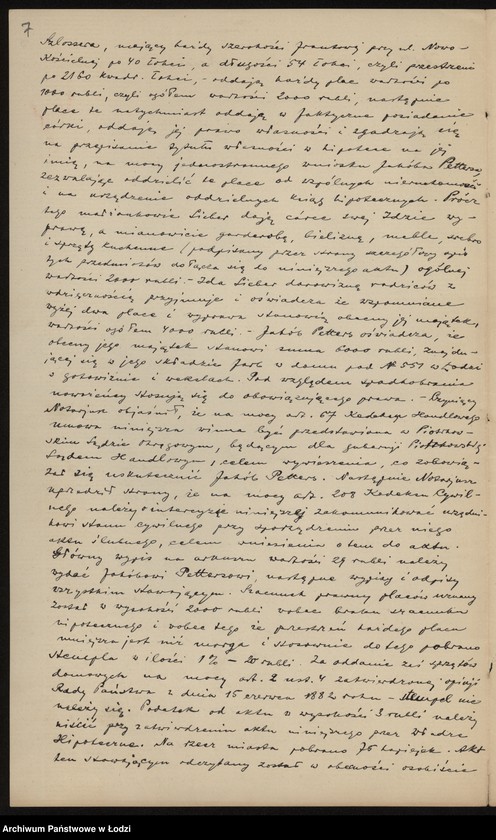 7
Szlossera, mający każdy szerokości frontowej przy ul. Nowo-
Kościelnej po 40 łokci, a długości 54 łokci, czyli przestrzeni
po 2160 kwadr. łokci, - oddają każdy plac wartości po
1000 rubli, czyli ogółem wartości 2000 rubli, następnie
place te natychmiast oddają w faktyczne posiadanie
córki, oddając jej prawo własności i zgadzają się
na przepisanie tytułu własności w hipotece na jej
imię, na mocy jednostronnego wniosku Jakóba Pettersa,
zezwalając oddzielić te place od wspólnych nieruchomości
i na urządzenie oddzielnych ksiąg hipotecznych. - Prócz
tego małżonkowie Sieber dają córce swej Idzie wy-
prawę, a mianowicie garderobę, bieliznę, meble, srebro
i sprzęty kuchenne (podpisany przez strony szczegółowy spis
tych przedmiotów dołącza się do niniejszego aktu) ogólnej
wartości 2000 rubli. - Ida Sieber darowiznę rodziców z
wdzięcznością przyjmuje i oświadcza że wspomniane
wyżej dwa place i wyprawa stanowią obecny jej majątek,
wartości ogółem 4000 rubli. - Jakób Petters oświadcza, że
obecny jego majątek stanowi suma 6000 rubli, znajdu-
jącej się w jego składzie farb w domu pod № 551 w Łodzi
w gotowiźnie i wekslach. Pod względem spadkobrania
nowożeńcy stosują się do obowiązującego prawa. - Czyniący
Notarjusz objaśnił, że na mocy art. 67 Kodeksu Handlowego
umowa niniejsza winna być przedstawiona w Piotrkow-
skim Sądzie Okręgowym, będącym dla guberni Piotrkowskiej
Sądem Handlowym, celem wywieszenia, co zobowią-
zał się uskutecznić Jakób Petters. Następnie Notarjusz
uprzedził strony, że na mocy art. 208 Kodeksu Cywil-
nego należy o intercyzie niniejszej zakomunikować urzędni-
kowi stanu cywilnego przy sporządzeniu przez niego
aktu ślubnego, celem wniesienia o tem do aktu.
Główny wypis na arkuszu wartości 29 rubli należy
wydać Jakóbowi Pettersowi, następne wypisy i odpisy
wszystkim stawającym. Szacunek prawny placów uznany
został w wysokości 2000 rubli wobec braku szacunku
hipotecznego i wobec tego że przestrzeń każdego placu
mniejsza jest niż morga i stosownie do tego pobrano
stempla w ilości 1% - 20 rubli. Za oddanie zaś sprzętów
domowych na mocy art. 2 ust. 4 zatwierdzonej opinji
Rady Państwa z dnia 15 czerwca 1882 roku - stempel nie
należy się. Podatek od aktu w wysokości 3 rubli należy
uiścić przy zatwierdzeniu aktu niniejszego przez Władzę
Hipoteczną. Na rzecz miasta pobrano 75 kopiejek. Akt
ten stawającym odczytany został w obecności osobiście
Archiwum Państwowe w Łodzi